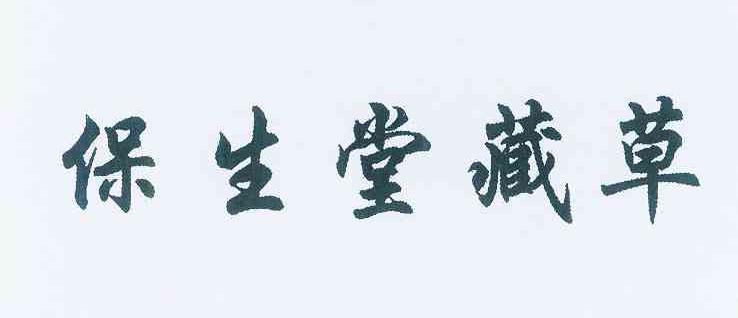 保生堂藏草